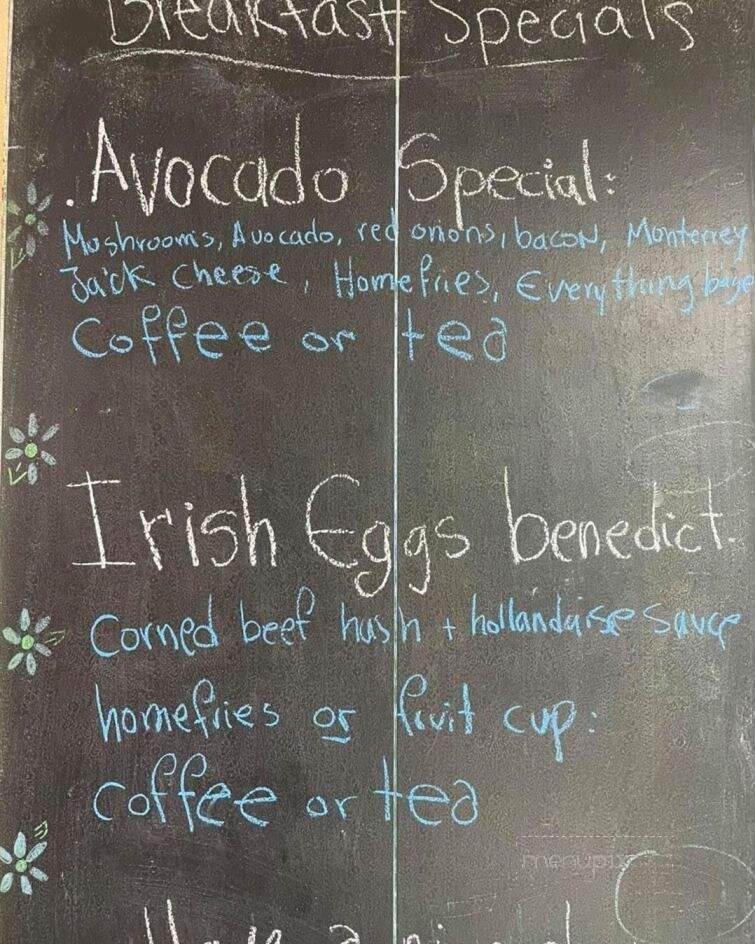 Breakfast Specials
. Avocado Special:
Mushrooms, Avocado, red onions, bacon, Monterrey
Jack cheese, Homefries, Everything bage
Coffee or tea
Irish Eggs benedict.
Corned beef hash + hollandaise sauce
homefries or fruit cup:
coffee or tea
menupix
Have a